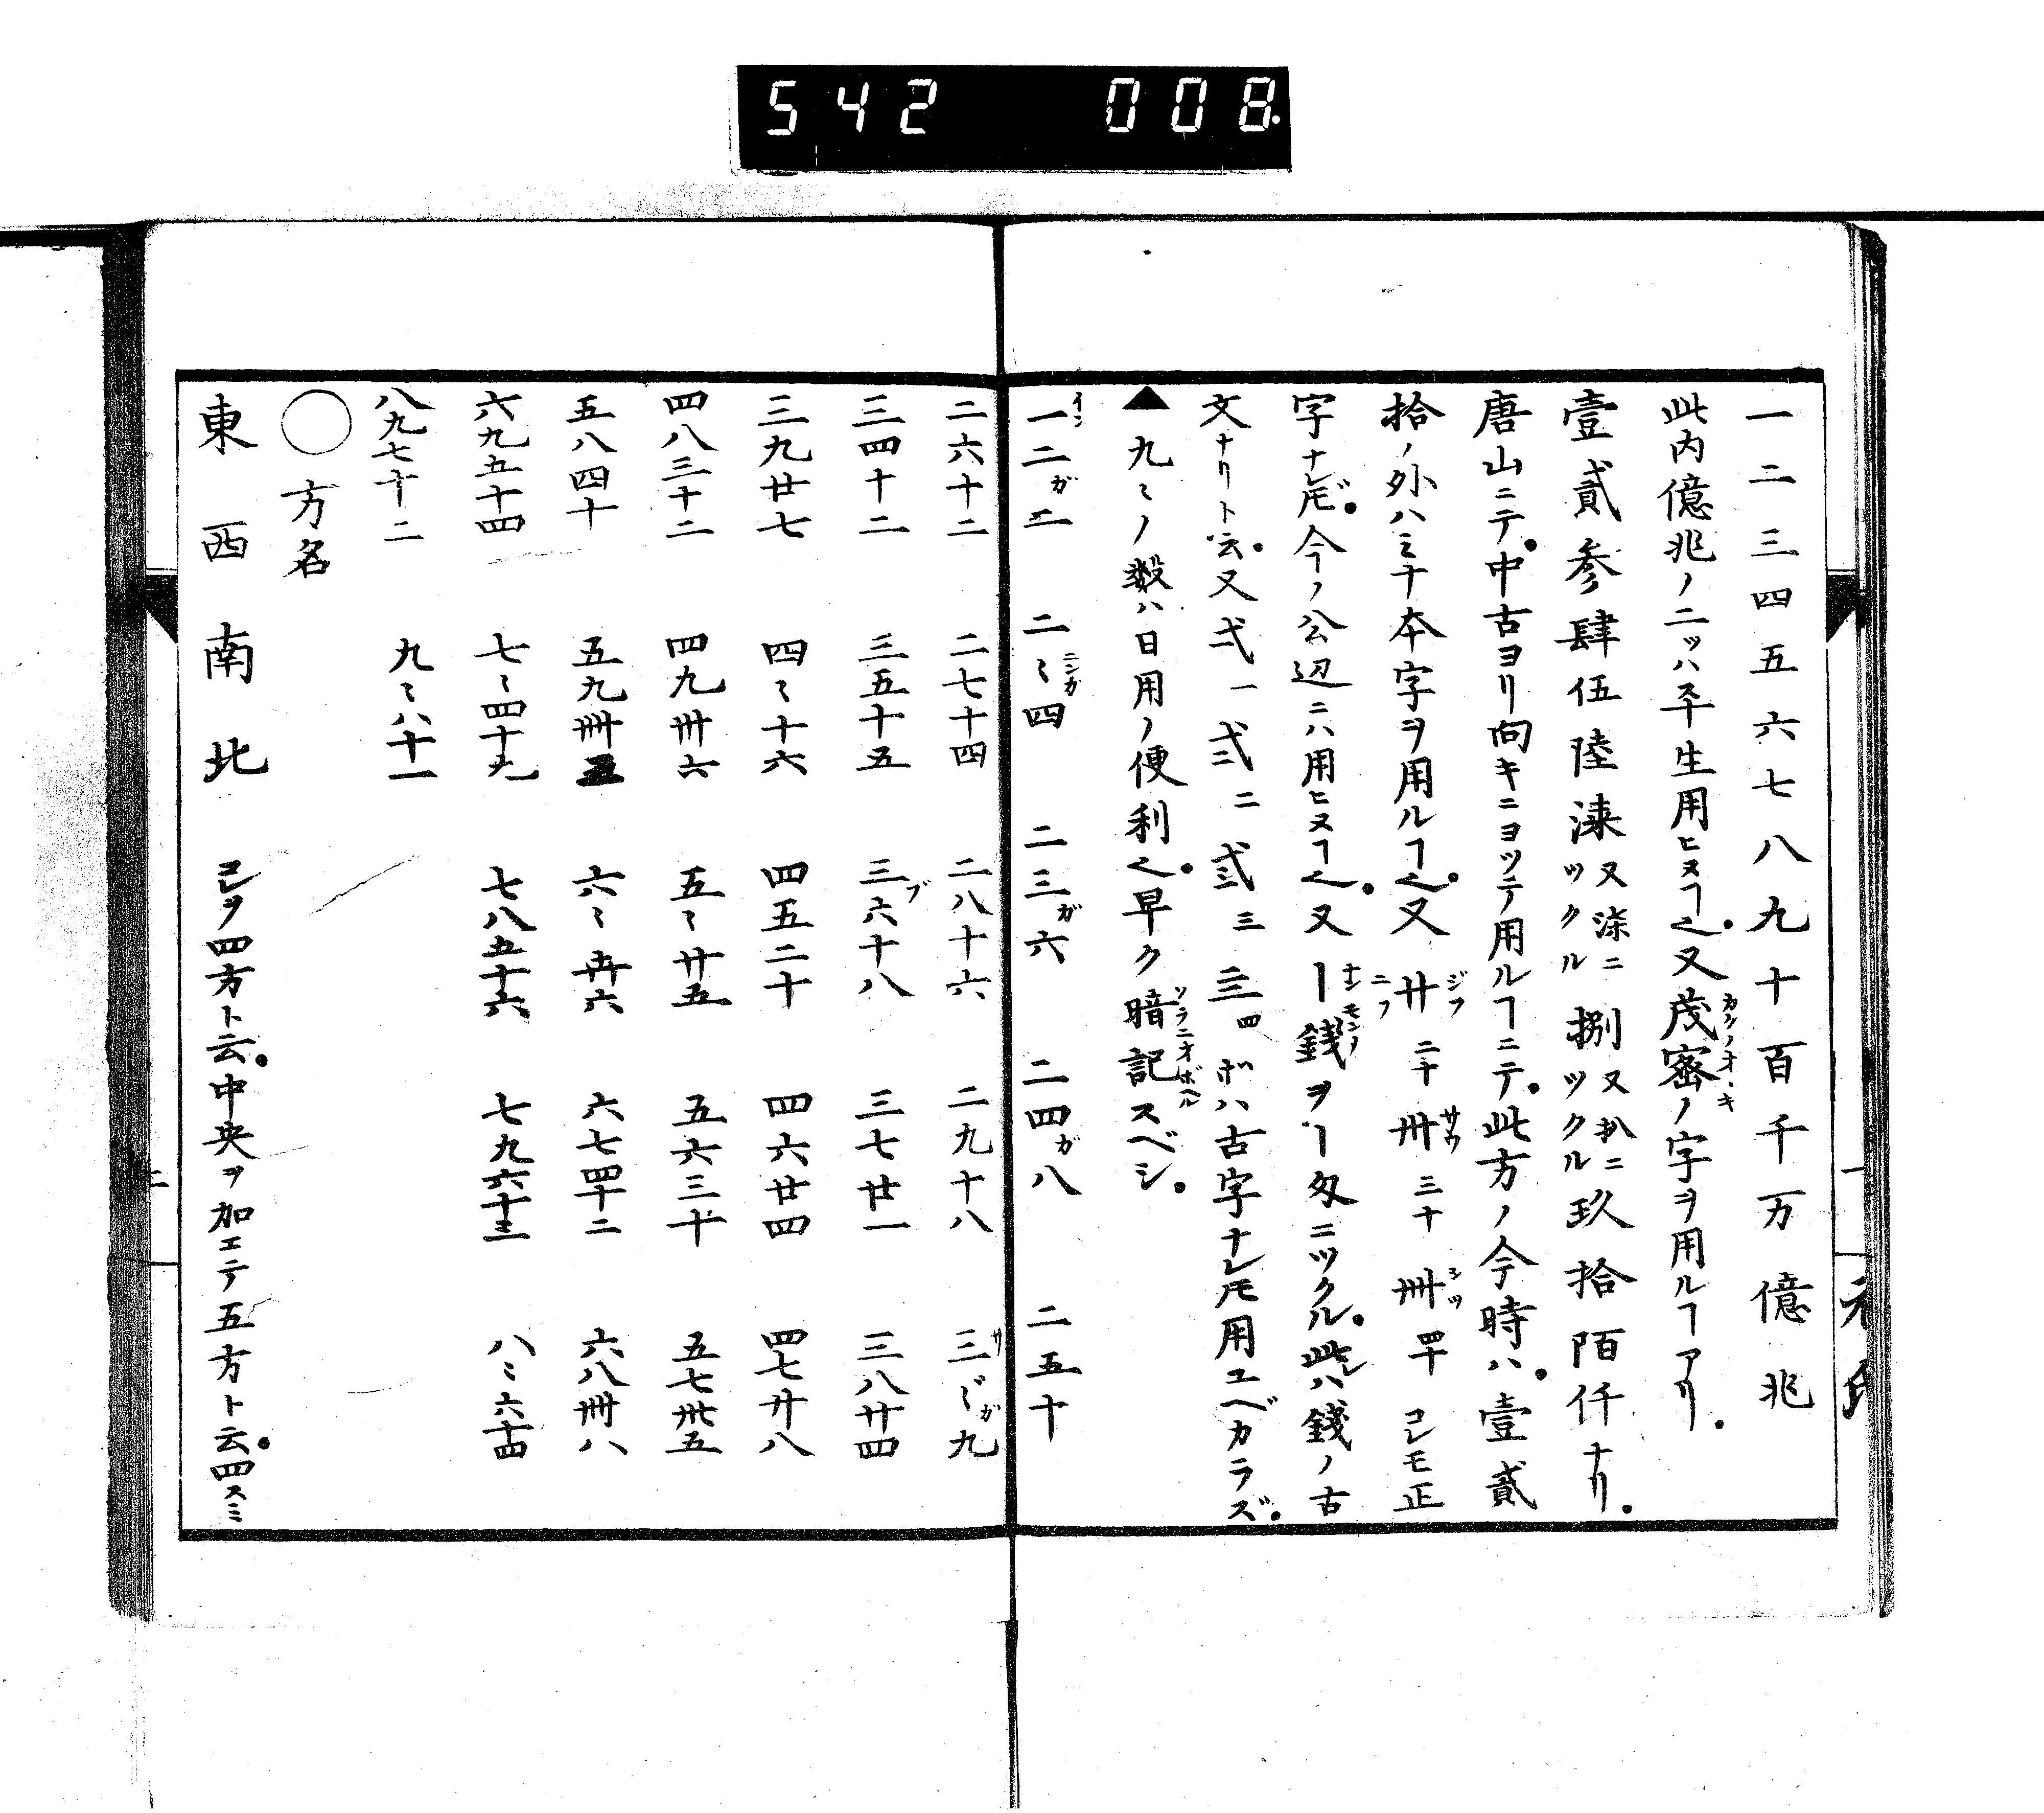 542 008.
一二三四五六七八九十百千万億兆
此内億兆ノ二ッハ平生用ヒヌヿ也。又茂密ノ字ヲ用ルヿアリ。
カクノオヽキ
壹貳参肆伍陸漆又漆ニツクル捌又扒ニツクル玖拾陌仟ナリ。
唐山ニテ。中古ヨリ向キニヨッテ用ルヿニテ。此方ノ今時ハ。壹貳
拾ノ外ハミナ本字ヲ用ルヿ也。又廿二十卅三十卌四十コレモ正
ニフ ジフ サウ シツ
字ナレ𪜈。今ノ公辺ニハ用ヒヌヿ也。又〡銭ヲ〡匁ニツクル。此レハ銭ノ古
ナンモンノ
文ナリト云。又弌一弍二弎三亖四ホハ古字ナレ𪜈用ユベカラズ。
▲九〻ノ数ハ日用ノ便利也。早ク暗記スベシ。
ソラニオボヘル
一二ガ二 二〻四 二三ガ六 二四ガ八 二五十
イン ニンガ
二六十二 二七十四 二八十六 二九十八 三〻ガ九
サ
三四十二 三五十五 三六十八 三七廿一 三八廿四
ブ
三九廿七 四〻十六 四五二十 四六廿四 四七廿八
四八三十二 四九卅六 五〻廿五 五六三十 五七卅五
五八四十 五九卌五 六〻卅六 六七四十二 六八卌八
六九五十四 七〻四十九 七八五十六 七九六十三 八〻六十四
八九七十二 九〻八十一
○方名
東西南北 コレヲ四方ト云。中央ヲ加エテ五方ト云。四スミ
二